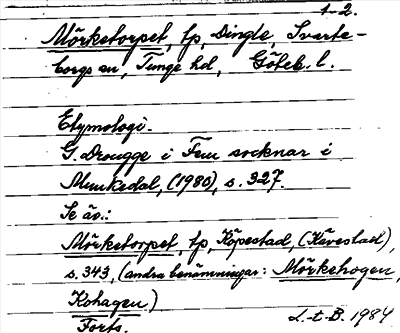 1-2.
Mörketorpet, tp, Dingle, Svarte-
borgs sn, Tunge hd, Göteb. l.
Etymologi.
G. Drougge i Fem socknar i
Munkedal, (1980), s. 327.
Se äv.:
Mörketorpet, tp, Köpestad, (Kåvestad),
s. 343, (andra benämningar: Mörkehogen,
Kohagen)
Forts. L-t-B. 1984